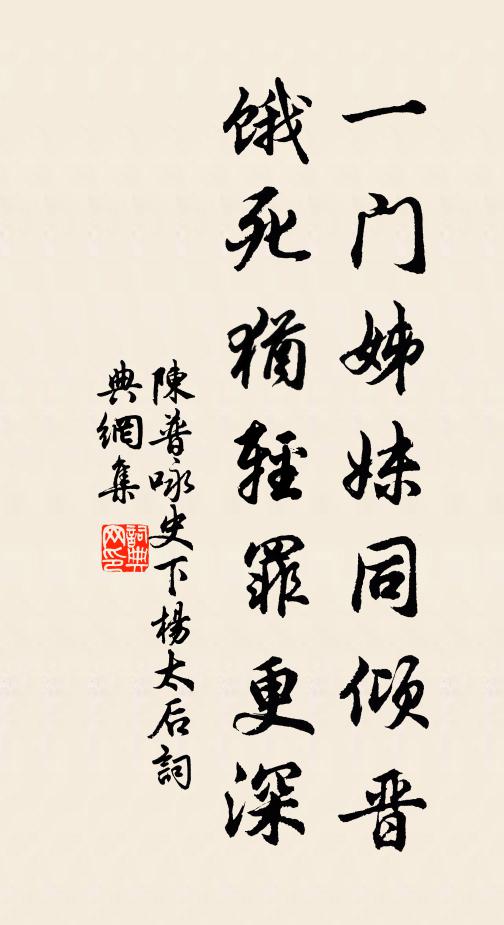 一门姊妹同倾晋
饿死犹轻罪更深
陳普咏史下楊太后詞
典網集
詞典網印